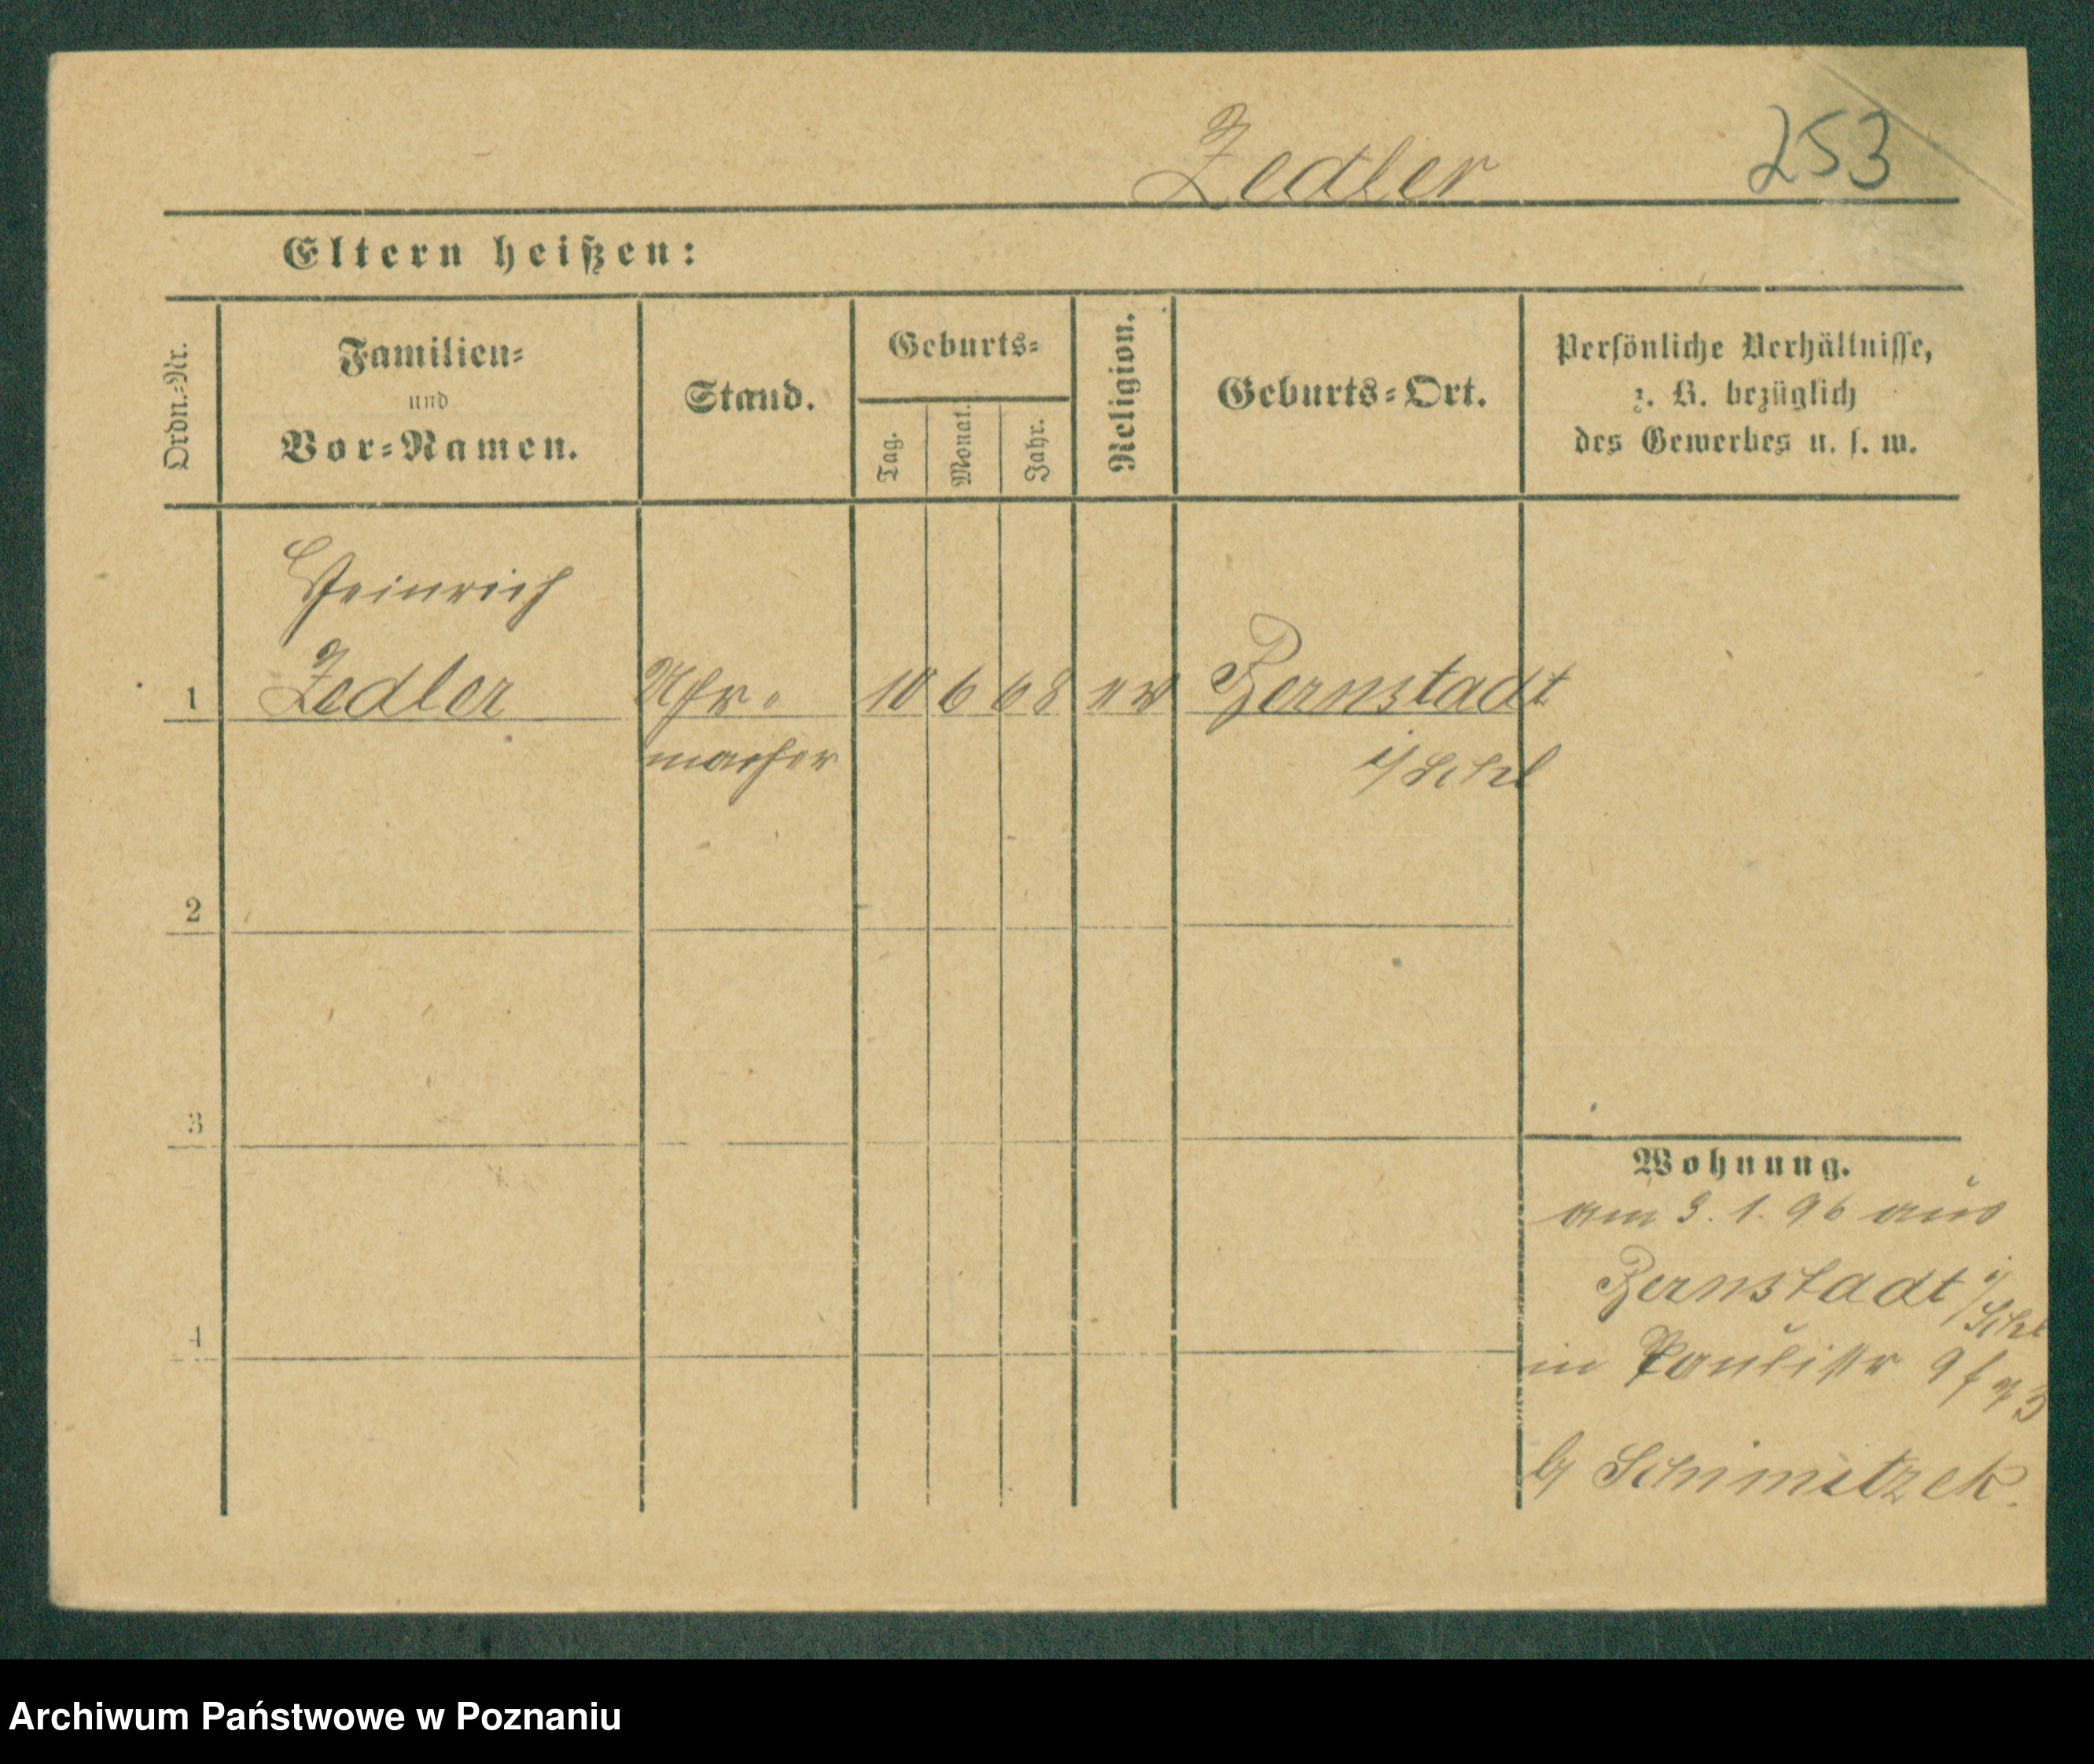 Zedler
253
Eltern heißen:
Ordn.-Nr.
Familien-
und
Vor-Namen.
Stand.
Geburts-
Tag.
Monat.
Jahr.
Religion.
Geburts-Ort.
Persönliche Verhältnisse,
z. B. bezüglich
des Gewerbes u. s. w.
Heinrich
1 Zedler Uhr- 10 6 68 ev Bernstadt
macher i/Schl
2
3
4
Wohnung.
am 3. 1. 96 aus
Bernstadt i/Schl
in Paulistr 9
b/ Schimitzek.
Archiwum Państwowe w Poznaniu